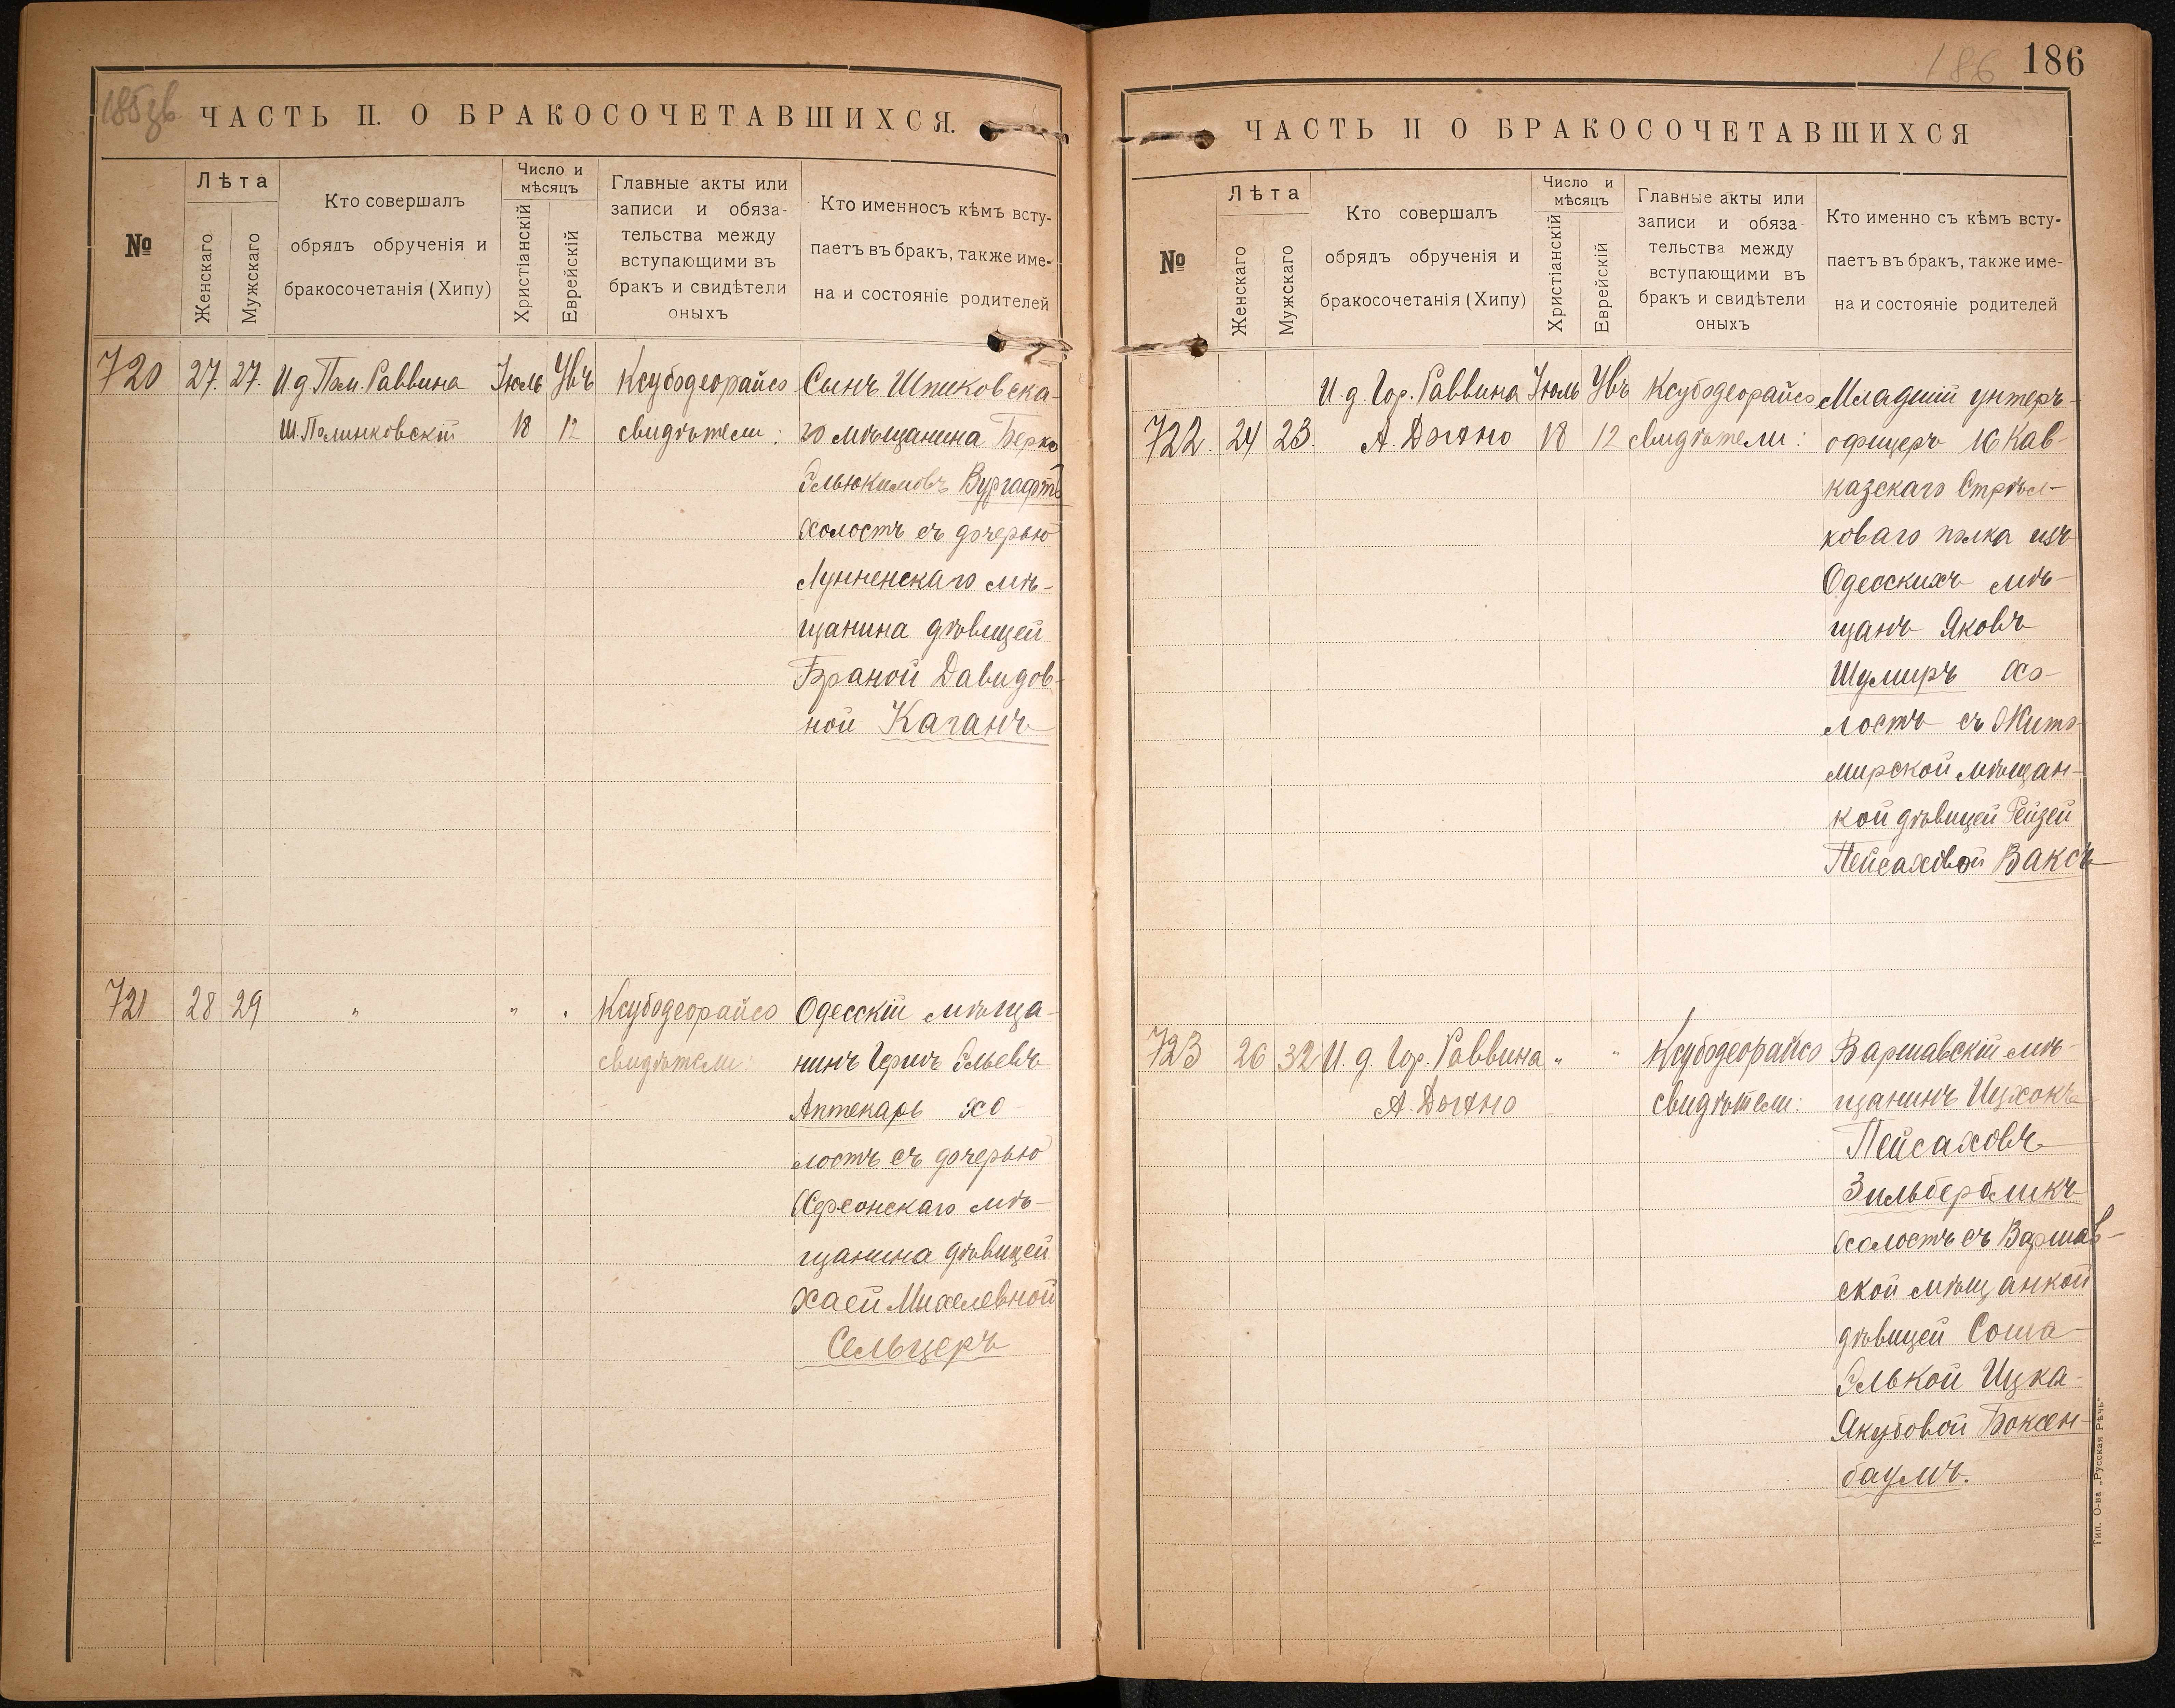 185 зв
ЧАСТЬ II. О БРАКОСОЧЕТАВШИХСЯ.
№
Лѣта
Женскаго
Мужскаго
Кто совершалъ
обрядъ обрученія и
бракосочетанія (Хипу)
Число и
мѣсяцъ
Христіанскій
Еврейскій
Главные акты или
записи и обяза-
тельства между
вступающими въ
бракъ и свидѣтели
оныхъ
Кто именносъ кѣмъ всту-
паетъ въ бракъ, также име-
на и состояніе родителей
720 27. 27. И.д. Пом. Раввина Іюль Увъ Ксубодеорайсо Сынъ Шпиковска-
Ш. Полинковскій 18 12 свидѣтели: го мѣщанина Берко
Эльюкимовъ Вургафтъ
холостъ съ дочерью
Лунненскаго мѣ-
щанина дѣвицей
Браной Давидов-
ной Каганъ
721 28 29 " " " Ксубодеорайсо Одесскій мѣща-
свидѣтели: нинъ Гершъ Эльевъ
Аптекарь хо-
лостъ съ дочерью
Херсонскаго мѣ-
щанина дѣвицей
Хаей Михелевной
Сельцеръ
186 186
ЧАСТЬ II О БРАКОСОЧЕТАВШИХСЯ
№
Лѣта
Женскаго
Мужскаго
Кто совершалъ
обрядъ обрученія и
бракосочетанія (Хипу)
Число и
мѣсяцъ
Христіанскій
Еврейскій
Главные акты или
записи и обяза-
тельства между
вступающими въ
бракъ и свидѣтели
оныхъ
Кто именно съ кѣмъ всту-
паетъ въ бракъ, также име-
на и состояніе родителей
И.д. Гор. Раввина Іюль Увъ Ксубодеорайсо Младшій унтеръ-
722. 24 23. А. Дыхно 18 12 свидѣтели: офицеръ 16 Кав-
казскаго Стрѣл-
коваго полка изъ
Одесскихъ мѣ-
щанъ Яковъ
Шумиръ хо-
лостъ съ Жито-
мирской мѣщан-
кой дѣвицей Рейзей
Пейсаховой Ваксъ
723 26 32 И.д. Гор. Раввина " " Ксубодеорайсо Варшавскій мѣ-
А. Дыхно свидѣтели: щанинъ Ицхокъ
Пейсаховъ
Зильбербликъ
холостъ съ Варшав-
ской мѣщанкой
дѣвицей Соша-
Элькой Ицка-
Якубовой Боксен-
баумъ.
Тип. О-ва „Русская Рѣчь"